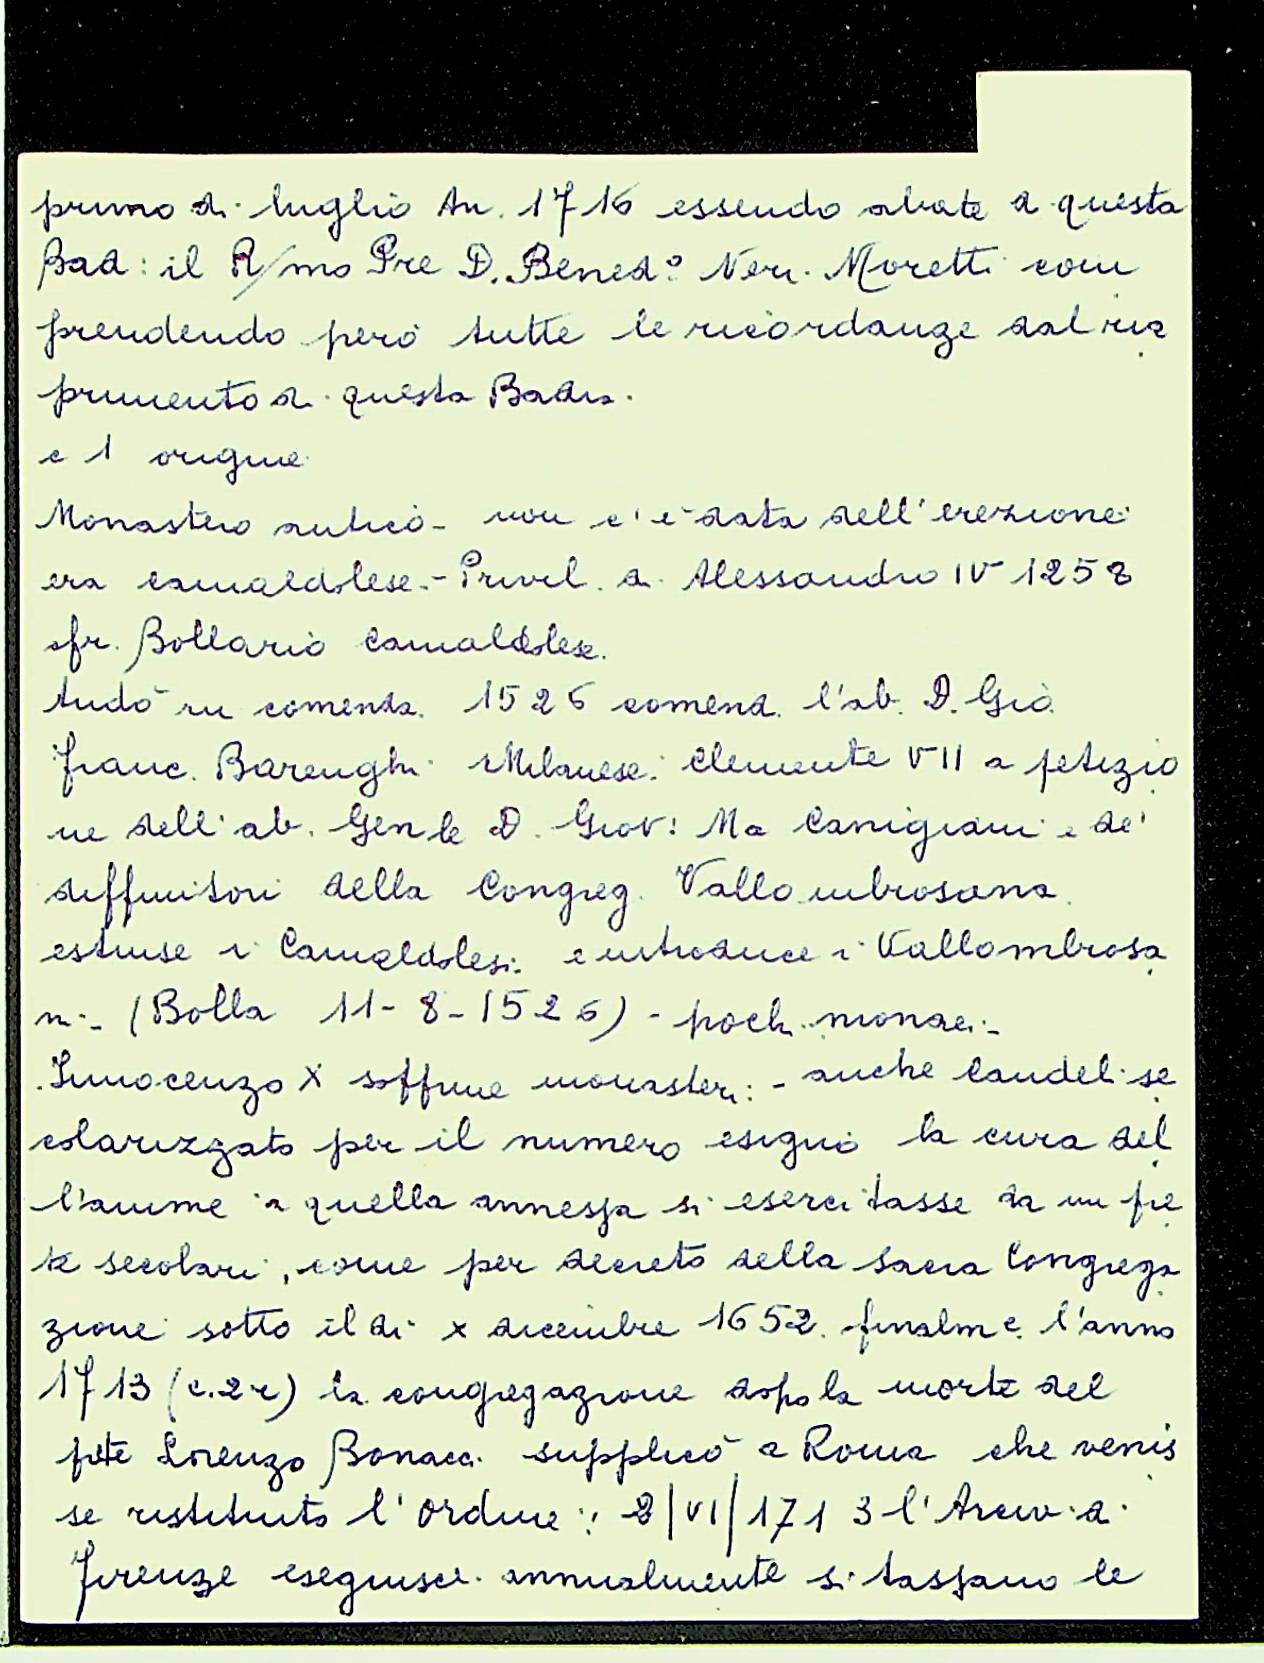 primo di luglio An. 1716 essendo abate di questa
Bad: il R/mo Pre D. Bened.º Neri Moretti com
prendendo però tutte le ricordanze dal ria
primento di questa Badia.
c 1 origine
Monastero antico - non c'è data dell'erezione
era camaldolese. - Privil. di Alessandro IV 1258
cfr. Bollario Camaldolese.
andò in comenda. 1526 comend. l'ab. D. Gio.
Franc. Barenghi Milanese. Clemente VII a petizio
ne dell'ab. Gen.le D. Giov: Ma Canigiani e de'
diffinitori della Congreg. Vallombrosana
estinse i Camaldolesi e introduce i Vallombrosa
ni - (Bolla 11-8-1526) - pochi monaci -
Innocenzo X soffime monasteri: - anche Candeli se
colarizzato per il numero esiguo la cura del
l'anime a quella annessa si esercitasse da un pre
te secolari, come per decreto della Sacra Congrega
zione sotto il di x dicembre 1652. finalm e. l'anno
1713 (c.2r) la congregazione dopo la morte del
pete Lorenzo Bonacci supplicò a Roma che venis
se restituito l'Ordine: 2/VI/1713 l'Arciv. di
Firenze eseguisce. annualmente si tassano le